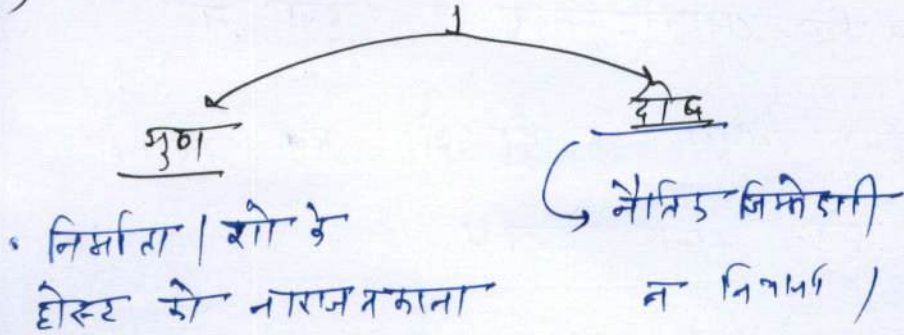 1
गुण
दोष
• निर्माता / शो के
होस्ट को नाराज न करना
नैतिक जिम्मेदारी
न निभाना /